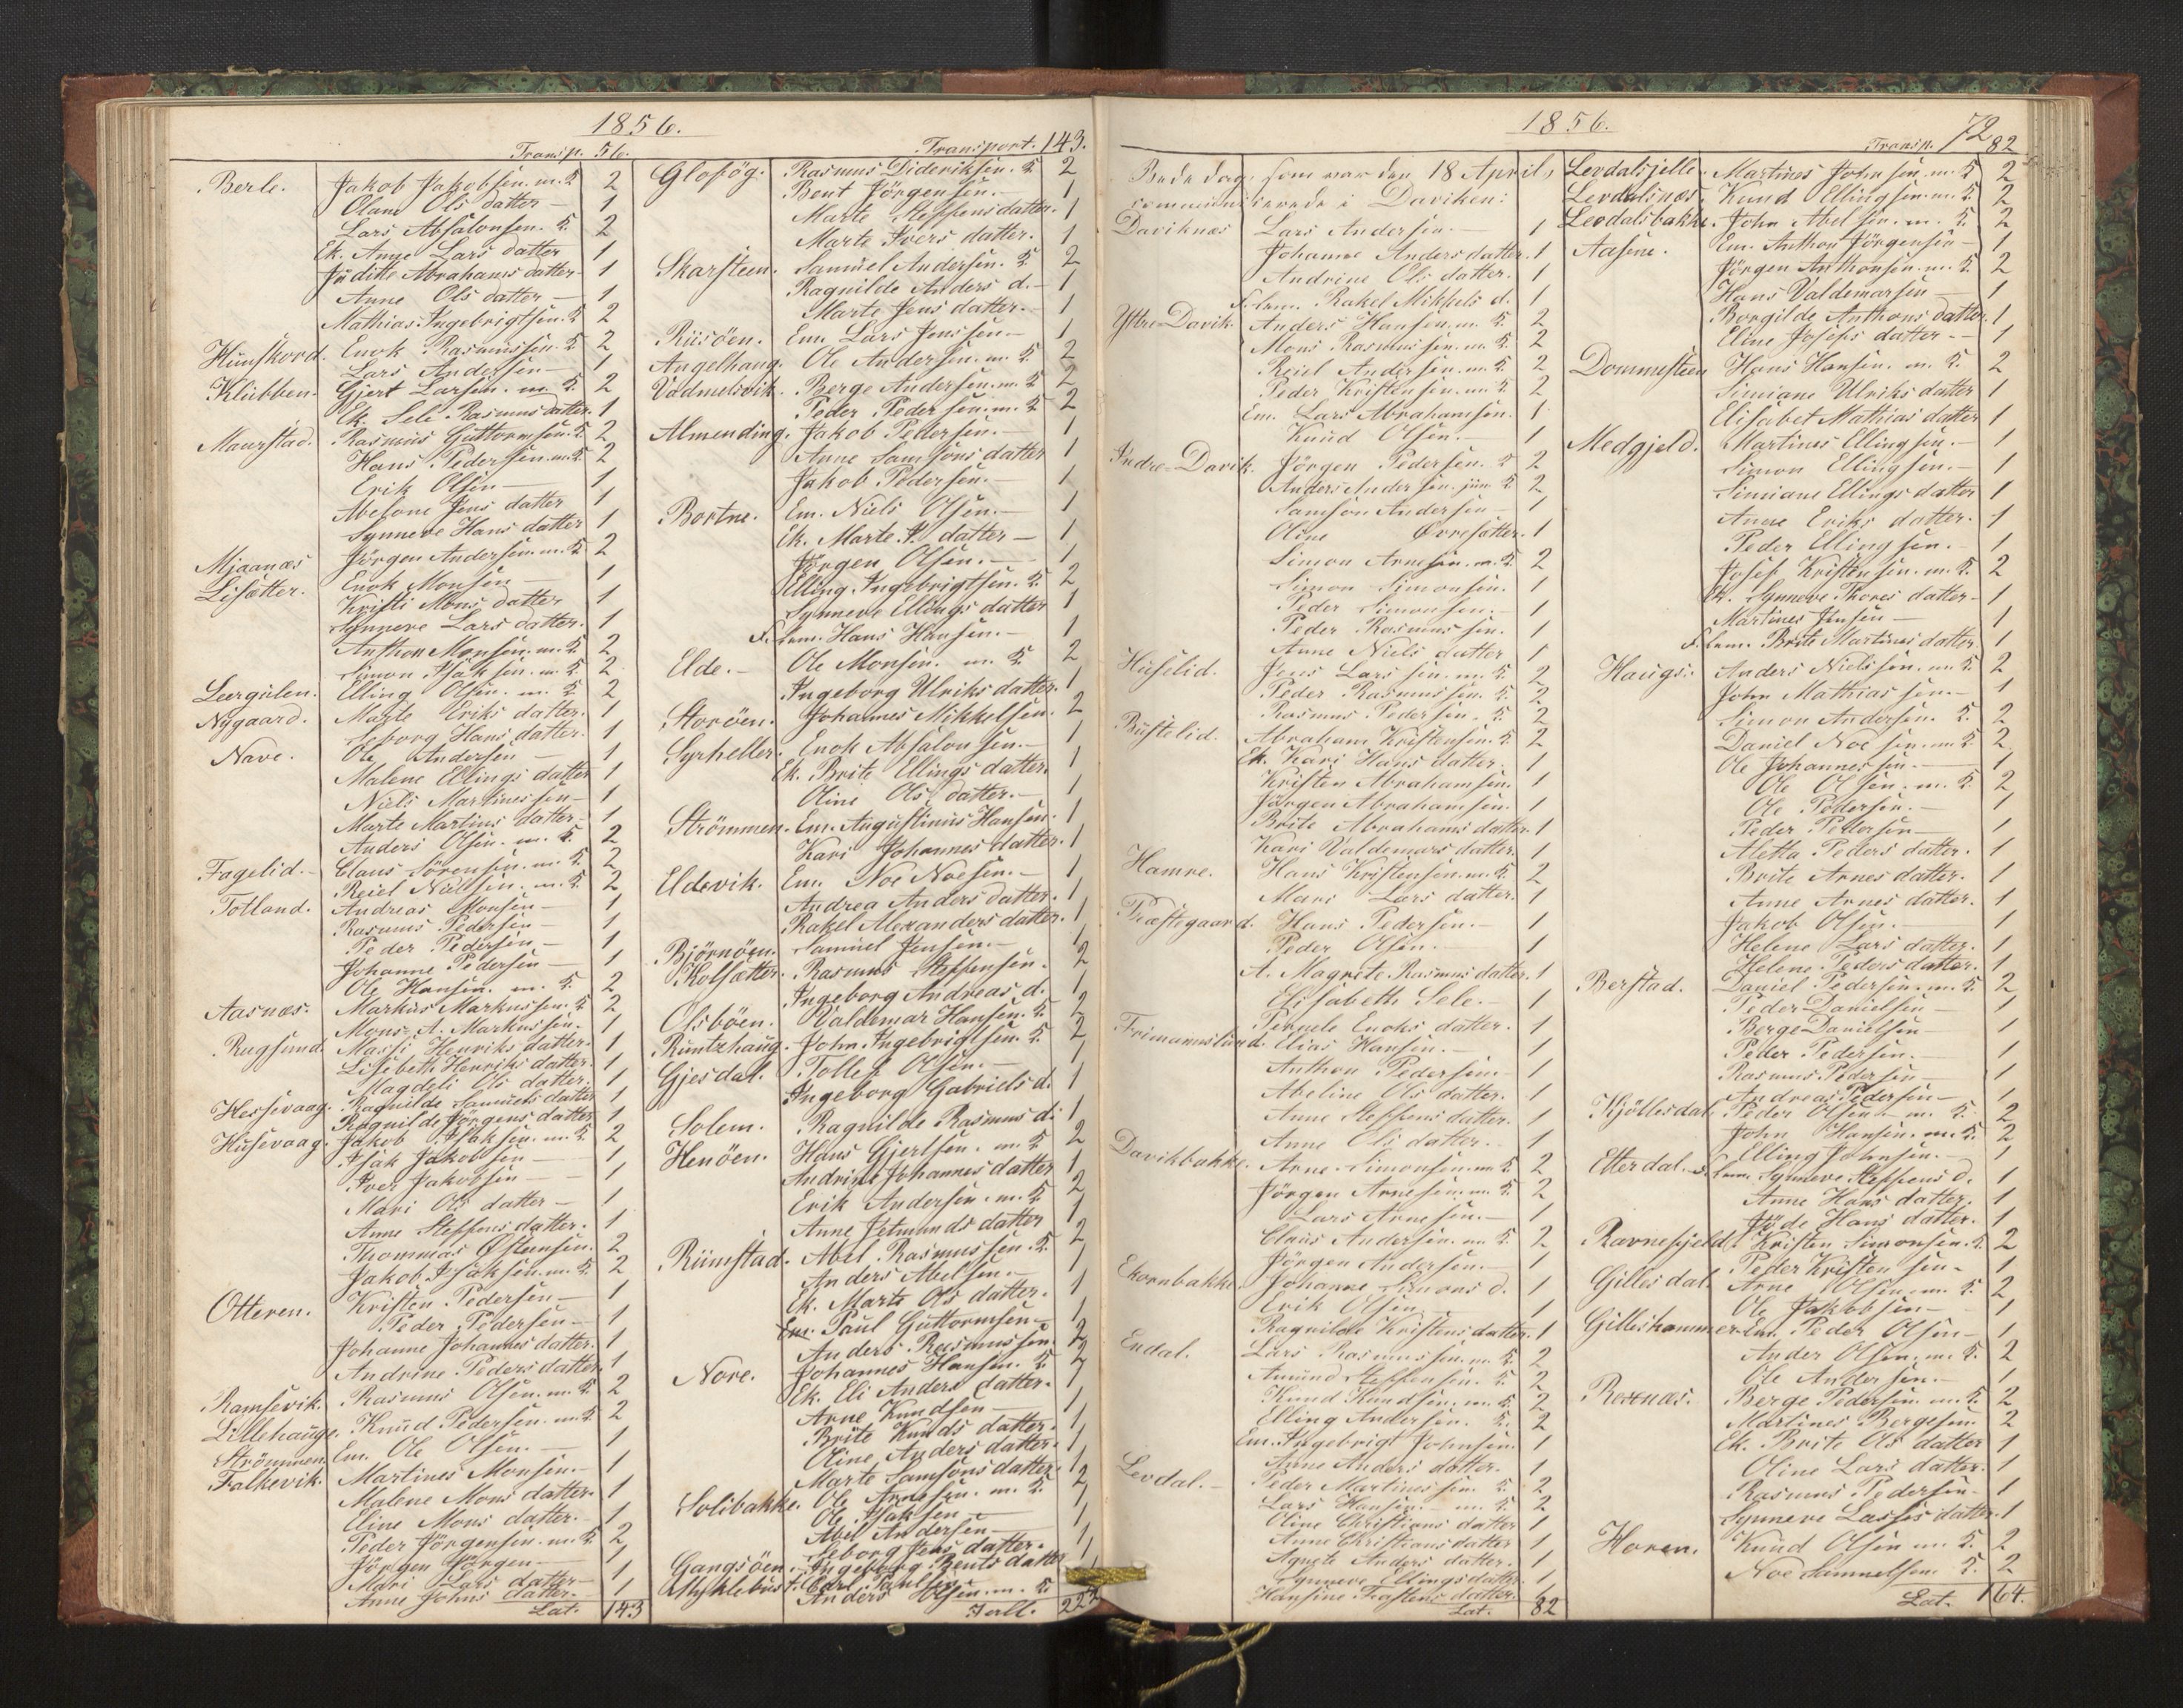 1856.
Transp. 56.
Berle. Jakob Jakobsen. m. K 2
Olam Ols datter — 1
Lars Absalonsen. K. 2
Ek. Anne Lars datter 1
Juditte Abrahams datter — 1
Anne Ols datter — 1
Mathias Ingebrigtsen. K 2
Hunskord. Enok Rasmussen. K 2
Lars Andersen — 1
Klubben. Gjert Larsen. m. K. 2
Ek. Sele Rasmus datter. 1
Maurstad. Rasmus Guttormsen. K 2
Hans Pedersen. m. K. 2
Erik Olsen — 1
Abelone Jens datter 1
Synneve Hans datter 1
Mjaanæs Jörgen Andersen. m. K 2
Lisætter. Enok Monsen — 1
Kristi Mons datter 1
Synneve Lars datter. 1
Anthon Monsen. m. K 2
Simon Isaksen. m. K 2
Leergulen. Elling Olsen. m. K 2
Nygaard. Marte Eriks datter. 1
Seborg Hans datter. 1
Nave. Ole Andersen — 1
Malene Ellings datter 1
Niels Martinessen — 1
Marte Martins datter — 1
Anders Olsen. m. K. 2
Fagelid. — Claus Sörensen. m. K. 2
Reiel Nielsen. m. K. 2
Totland. Andreas Monsen — 1
Rasmus Pedersen — 1
Peder Pedersen — 1
Johanne Pedersen — 1
Ole Hansen. m. K. 2
Aasnæs. Markus Markussen. K 2
Mons A. Markussen. 1
Rugsund. Massi Henriks datter. 1
Lisebeth Henriks datter. 1
Magdeli Ols datter. 1
Hessevaag. Ragnilde Samuels datter 1
Ragnilde Jörgens datter 1
Husevaag. Jakob Isaksen. m. K. 2
Isak Jakobsen — 1
Iver Jakobsen — 1
Mari Ols datter — 1
Anne Steffens datter. 1
Thommas Østensen. 2
Jakob Isaksen. m. K. 2
Otteren. Kristen Pedersen — 1
Peder Pedersen — 1
Johanne Johannes datter. 1
Andrine Peders datter 1
Ramsevik. Rasmus Olsen. m. K. 2
Lillehauge. Knud Pedersen. m. K. 2
Strömmen. Em. Ole Olsen. — 1
Falkevik. Martines Monsen. — 1
Malene Mons datter. 1
Eline Mons datter. — 1
Peder Jörgensen. m. K 2
Jörgen Jörgen — 1
Mari Lars datter — 1
Anne Johns datter. 1
Lat. 143
Transport. 143.
Glofög. Rasmus Dideriksen. K 2
Bent Jörgensen. — 1
Marte Steffens datter. 1
Marte Ivers datter. 1
Skarsteen. Samuel Andersen. K 2
Ragnilde Anders d. — 1
Marte Jens datter. — 1
Rüsöen. Em. Lars Jenssen. — 1
Angelhaug. Ole Andersen. m. K. 2
Vadmelsvik. Berge Andersen. m. K 2
Peder Pedersen. m. K 2
Almending. Jakob Pettersen. — 1
Anne Samsons datter 1
Jakob Pedersen. — 1
Bortne. Em. Niels Olsen. — 1
Ek. Marte P. datter — 1
Jörgen Olsen. — 1
Elling Ingebrigtsen. K. 2
Synneve Ellings datter 1
F. lem. Hans Hansen. — 1
Elde. — Ole Monsen. m. K. 2
Ingeborg Ulriks datter. 1
Storöen. Johannes Mikkelsen. 2
Syrheller. Enok Absalonsen. — 1
Ek. Brite Ellings datter. 1
Oline Ols datter. — 1
Strömmen. Em. Augustinus Hansen. 1
Kari Johannes datter. 1
Eldevik. Em. Noe Noesen. — 1
Andrea Anders datter. 1
Rakel Alexanders datter. 1
Björnöen. Samuel Jensen. — 1
Kolsætter. Rasmus Steffensen. 2
Ingeborg Andreas d. 1
Olsböen. Valdemar Hansen. K. 2
Runtzhaug. John Ingebrigtsen. K. 2
Gjesdal. Tollef Olsen. — 1
Ingeborg Gabriels d. 1
Solem. Ragnilde Rasmus d: 1
Henöen. Hans Gjertsen. m. K 2
Andrine Johannes datter 1
Erik Andersen. m. K. 2
Anne Jetmunds datter 1
Rümstad. Abel Rasmussen. K. 2
Anders Abelsen. — 1
Ek. Marte Ols datter. 1
Em. Paul Guttormsen — 1
Anders Rasmussen. 2
Nore. Johannes Hansen. K. 2
Ek. Eli Anders datter. 1
Arne Knudsen — 1
Brite Knuds datter. 1
Oline Anders datter. 1
Marte Samsons datter. 1
Solibakke. Ole Arnesen. m. K. 2
Ole Isaksen — 1
Abil Andersen — 1
Seborg Jens datter. 1
Gangsöen. Ingeborg Bents datter 1
Myklebüst. Carl Paulsen.
Anders Olsen. m. K
Iall. 222
1856.
72
Transp. 82
Bededag, som var den 18 April,
communicerede i Daviken:
Daviknæs Lars Andersen. — 1
Johanne Anders datter. 1
Andrine Ols datter. 1
F. lem. Rakel Mikkels d. 1
Yttre Davik. Anders Hansen. m. K. 2
Mons Rasmussen. m. K. 2
Reiel Andersen. m. K 2
Peder Kristensen. m. K 2
Em. Lars Abrahamsen. 1
Knud Olsen. — 1
Indre-Davik. Jörgen Pedersen. K 2
Anders Andersen. jun. K. 2
Samson Andersen 1
Oline Øvresætter. 1
Simon Arnesen. m. K 2
Simon Simonsen. 1
Peder Simonsen. — 1
Peder Rasmussen. 1
Anne Niels datter 1
Huselid. Jens Larssen. m. K 2
Peder Rasmussen. K. 2
Rasmus Pedersen. K. 2
Bustelid. Abraham Kristensen. K 2
Ek. Kari Hans datter. 1
Kristen Abrahamsen. 1
Jörgen Abrahamsen. 1
Brite Abrahams datter. 1
Kari Valdemars datter. 1
Hamre. Hans Kristensen. m. K 2
Mari Lars datter. 1
Præstegaard. Hans Pedersen. — 1
Peder Olsen. — 1
A. Magrete Rasmus datter. 1
Elisabeth Sele. — 1
Pernele Enoks datter. 1
Frimannslund. Elias Hansen. — 1
Anthon Pedersen. — 1
Abeline Ols datter. 1
Anne Steffens datter. 1
Anne Ols datter. 1
Davikbakke. Arne Simonsen. m. K 2
Jörgen Arnesen. m. K 2
Lars Arnesen. — 1
Claus Andersen. m. K. 2
Jörgen Andersen. — 1
Ekornbakke. Johanne Simons d. 1
Erik Olsen 1
Ragnilde Kristens datter. 1
Endal. Lars Rasmussen. m. K. 2
Amund Steffensen. K. 2
Knud Knudsen. m. K 2
Elling Andersen. K. 2
Em. Ingebrigt Johnsen. 1
Anne Anders datter. 1
Levdal. — Peder Martinessen. K 2
Lars Hansen. m. K. 2
Oline Christians datter 1
Anne Christians datter 1
Agnete Anders datter. 1
Synneve Ellings datter. 1
Hansine datter.
Lat. 82
Levdalsjelle. Martines Johnsen. m. K 2
Levdalsnæs. Knud Ellingsen. m. K 2
Levdalsbakke. John Abelsen. m. K. 2
Aasene. Em. Anthon Jörgensen — 1
Jörgen Anthonsen. m. K. 2
Hans Valdemarsen — 1
Borgilde Anthons datter. 1
Eline Josefs datter — 1
Dommesteen Hans Hansen. m. K. 2
Simiane Ulriks datter 1
Elisabet Mathias datter 1
Medgjeld. Martines Ellingsen. — 1
Simon Ellingsen. — 1
Simiane Ellings datter 1
Anne Eriks datter. 1
Peder Ellingsen. — 1
Josef Kristensen. m. K. 2
Ek. Synneve Thores datter — 1
Martines Jensen — 1
F. lem. Brite Martines datter 1
Haugs. Anders Nielssen. m. K 2
John Mathiassen. — 1
Simon Andersen. K. 2
Daniel Noesen. m. K 2
Ole Johannessen. — 1
Ole Olsen. m. K. 2
Ole Pedersen. — 1
Peder Pedersen — 1
Aletta Peders datter. 1
Brite Arnes datter. 1
Anne Arnes datter. 1
Jakob Olsen. — 1
Helene Lars datter. 1
Helene Peders datter. 1
Berstad. Daniel Pedersen. m. K 2
Peder Danielsen — 1
Berge Danielsen 1
Peder Pedersen. — 1
Rasmus Pedersen — 1
Andreas Pedersen — 1
Kjöllesdal. Peder Olsen. m. K. 2
John Hansen. m. K. 2
Elling Johnsen. — 1
Etterdal. F. lem. Synneve Steffens d. 1
Anne Hans datter. 1
Jöde Hans datter. 1
Ravnefjeld. Kristen Simonsen. K. 2
Peder Kristensen. 1
Gillesdal. Arne Olsen. m. K 2
Ole Jakobsen — 1
Gilleskammer. Em. Peder Olsen — 1
Ander Olsen. m. K. 2
Ole Andersen. — 1
Rexnæs. Berge Pedersen. m. K 2
Martines Bergesen 2
Ek. Brite Ols datter 1
Oline Lars datter. 1
Rasmus Pedersen — 1
Synneve Lasses datter. 1
Horen. Knud Olsen m. K. 2
Noe Samuelsen K. 2
Lat. 164.